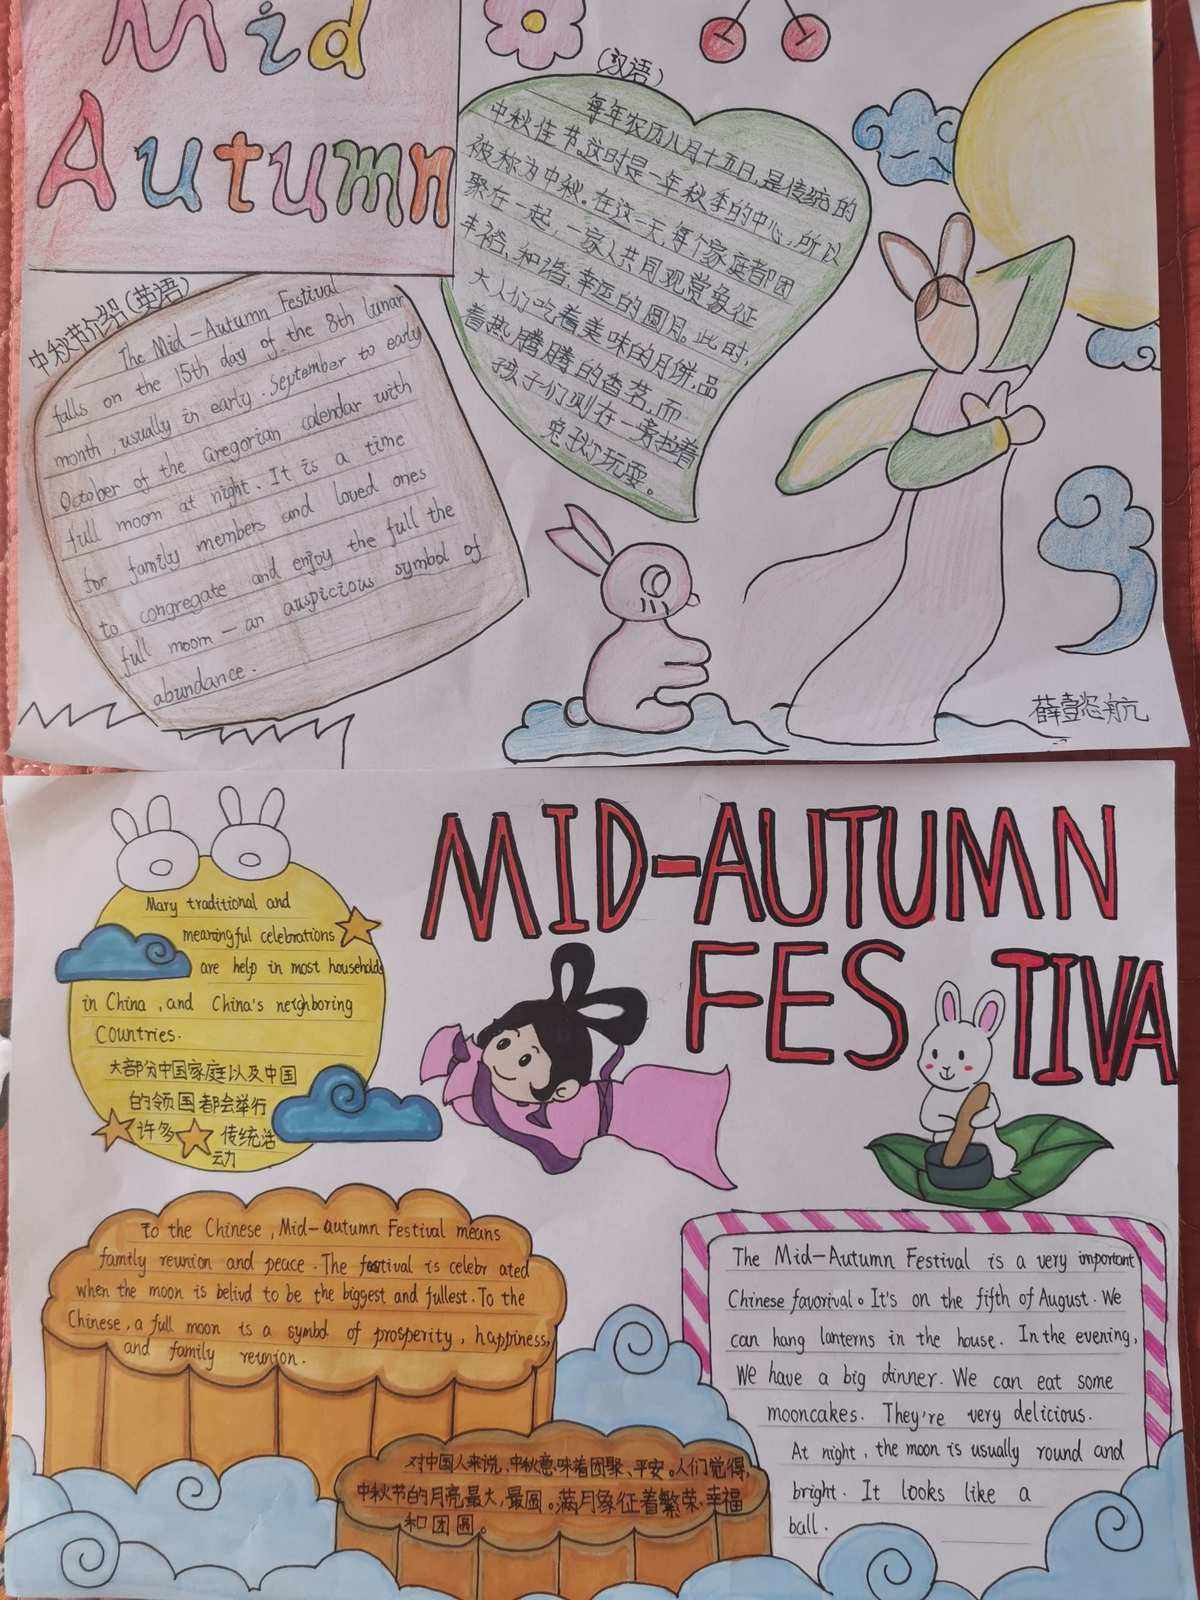 Mid
Autumn
(汉语)
每年农历八月十五日,是传统的
中秋佳节。这时是一年秋季的中心,所以
被称为中秋。在这一天,每个家庭都团
聚在一起,一家人共同观赏象征
丰裕,和谐,幸运的圆月。此时,
大人们吃着美味的月饼,品
着热腾腾的香茗,而
孩子们则在一旁拉着
兔子灯玩耍。
中秋节介绍(英语)
The Mid-Autumn Festival
falls on the 15th day of the 8th lunar
month, usually in early September to early
October of the Gregorian calendar with
full moom at night. It is a time
for family members and loved ones
to congregate and enjoy the full the
full moom — an auspicious symbol of
abundance.
MID-AUTUMN
FESTIVA
Many traditional and
meaningful celebrations
are help in most households
in China, and China's neighboring
Countries.
大部分中国家庭以及中国
的领国都会举行
许多 传统活
动
To the Chinese, Mid-autumn Festival means
family reunion and peace. The festival is celebr ated
when the moon is belivd to be the biggest and fullest. To the
Chinese, a full moon is a symbol of prosperity, happiness,
and family reunion.
对中国人来说,中秋意味着团聚、平安。人们觉得,
中秋节的月亮最大,最圆。满月象征着繁荣,幸福
和团圆。
The Mid-Autumn Festival is a very important
Chinese favorival。It's on the fifth of August. We
can hang lanterns in the house. In the evening,
We have a big dinner. We can eat some
mooncakes. They're very delicious.
At night, the moon is usually round and
bright. It looks like a
ball.